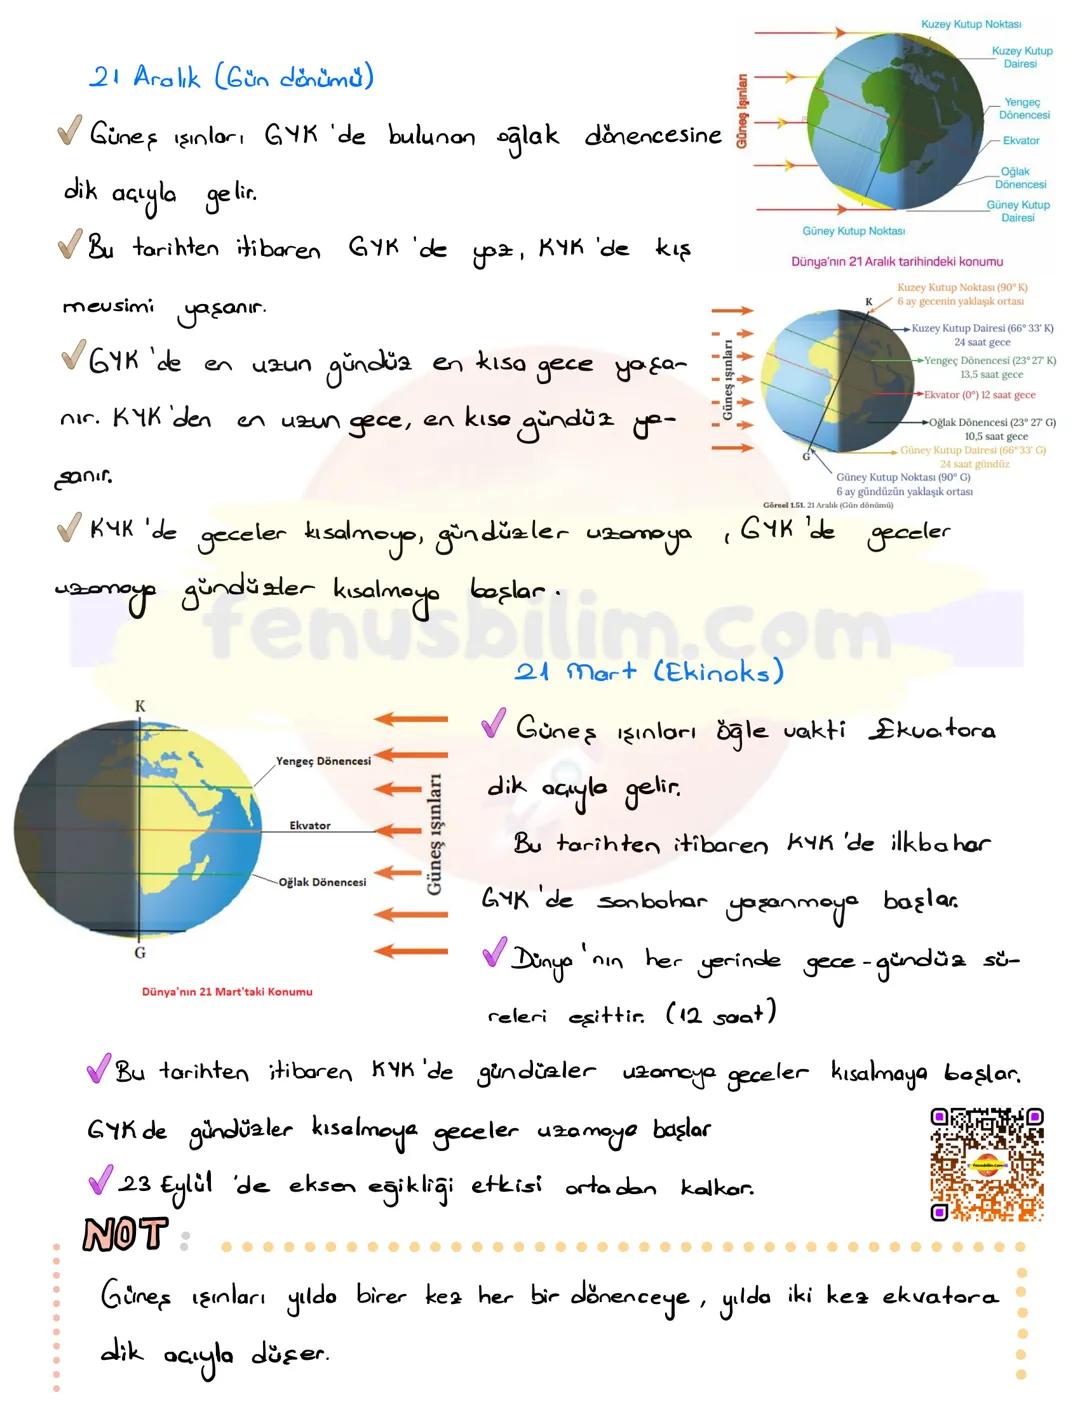 21 Aralık (Gün dönümü)
Güneş ışınları GYK 'de bulunan oğlak dönencesine
dik açıyla gelir.
Bu tarihten itibaren GYK 'de yaz, KYK 'de kış
mevsimi yaşanır.
GYK 'de en uzun gündüz en kısa gece yaşa-
nır. KYK 'den en uzun gece, en kısa gündüz ya-
şanır.
KYK 'de geceler kısalmaya, gündüzler uzamaya , GYK 'de geceler
uzamaya gündüzler kısalmaya başlar.
Güneş ışınları
Kuzey Kutup Noktası
Kuzey Kutup
Dairesi
Yengeç
Dönencesi
Ekvator
Oğlak
Dönencesi
Güney Kutup
Dairesi
Güney Kutup Noktası
Dünya'nın 21 Aralık tarihindeki konumu
Güneş ışınları
K
G
Kuzey Kutup Noktası (90° K)
6 ay gecenin yaklaşık ortası
Kuzey Kutup Dairesi (66° 33' K)
24 saat gece
Yengeç Dönencesi (23° 27' K)
13,5 saat gece
Ekvator (0°) 12 saat gece
Oğlak Dönencesi (23° 27' G)
10,5 saat gece
Güney Kutup Dairesi (66° 33' G)
24 saat gündüz
Güney Kutup Noktası (90° G)
6 ay gündüzün yaklaşık ortası
Görsel 1.51. 21 Aralık (Gün dönümü)
fenusbilim.com
21 Mart (Ekinoks)
Güneş ışınları öğle vakti Ekvatora
dik açıyla gelir.
Bu tarihten itibaren KYK 'de ilkbahar
GYK 'de sonbahar yaşanmaya başlar.
Dünya 'nın her yerinde gece-gündüz sü-
releri eşittir. (12 saat)
K
Yengeç Dönencesi
Ekvator
Oğlak Dönencesi
G
Güneş ışınları
Dünya'nın 21 Mart'taki Konumu
Bu tarihten itibaren KYK 'de gündüzler uzamaya geceler kısalmaya başlar.
GYK de gündüzler kısalmaya geceler uzamaya başlar
23 Eylül 'de eksen eğikliği etkisi ortadan kalkar.
fenusbilim.com
NOT:
Güneş ışınları yılda birer kez her bir dönenceye, yılda iki kez ekvatora
dik açıyla düşer.